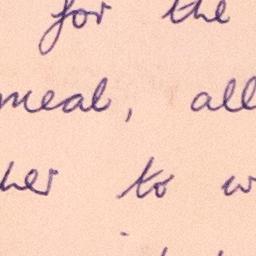 for the
meal, all
her to w